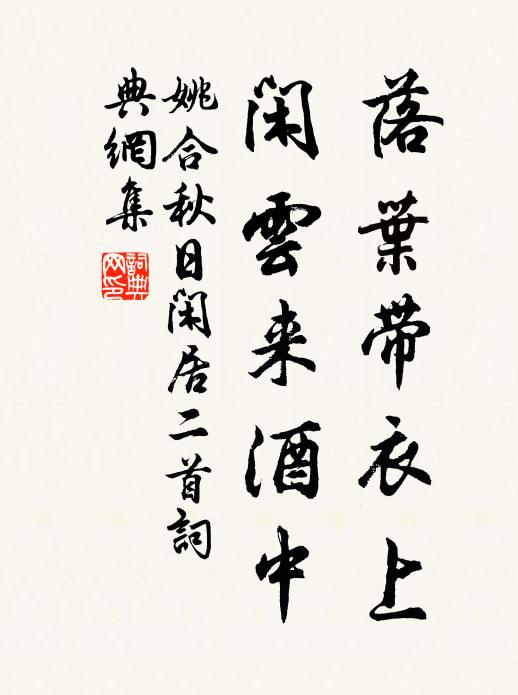 落葉带衣上
閑雲来酒中
姚合秋日閑居二首詞
典網集
詞典
网印